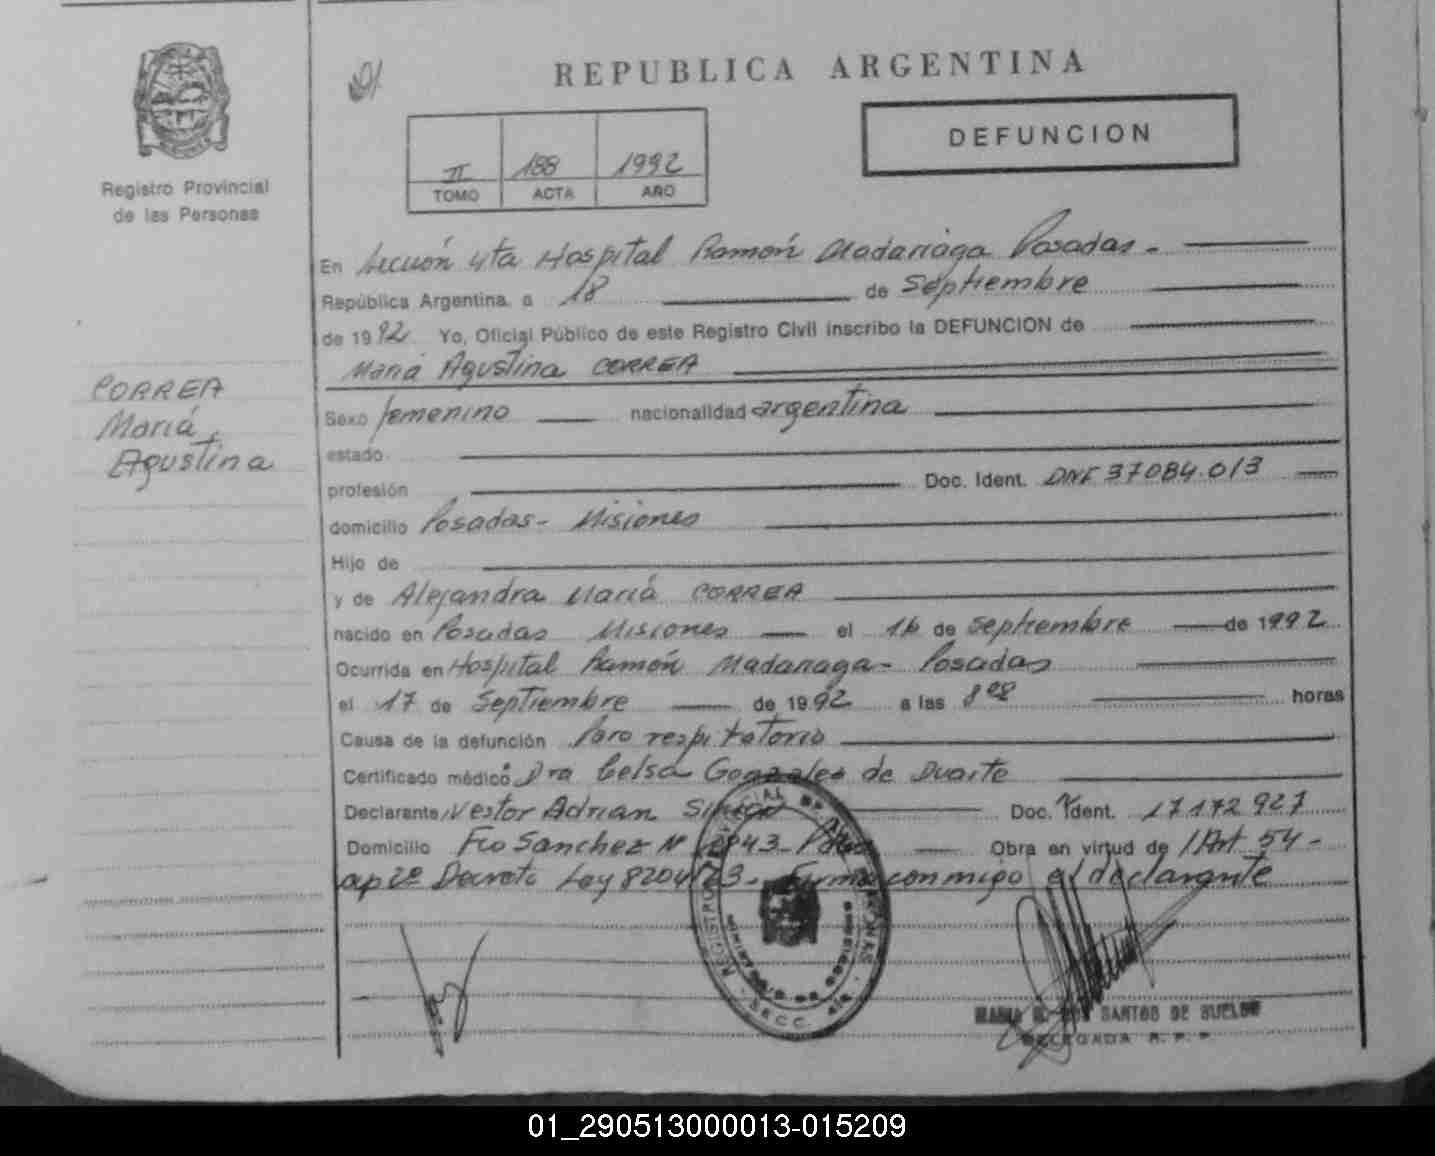 REPUBLICA ARGENTINA
DEFUNCION
II 188 1992
TOMO ACTA AÑO
Registro Provincial
de las Personas
En Sección 4ta Hospital Ramón Madariaga Posadas -
República Argentina, a 18 de Septiembre
de 1992 Yo, Oficial Público de este Registro Civil inscribo la DEFUNCION de
María Agustina CORREA
CORREA
María
Agustina
Sexo femenino nacionalidad argentina
estado
profesión Doc. Ident. DNI 37084.013
domicilio Posadas - Misiones
Hijo de
y de Alejandra María CORREA
nacido en Posadas Misiones el 16 de Septiembre de 1992
Ocurrida en Hospital Ramón Madariaga - Posadas
el 17 de Septiembre de 1992 a las horas
Causa de la defunción Paro respitatorio
Certificado médico Dra Celsa Gonzales de Duarte
Declarante Nestor Adrian Doc. Ident. 17172927
Domicilio Fco Sanchez Nº Obra en virtud de 1 Art 54 -
ap 2º Decreto Ley 8204/63 - Firma conmigo el declarante
SANTOS DE SUELDO
DELEGADA R. P. P.
01_290513000013-015209